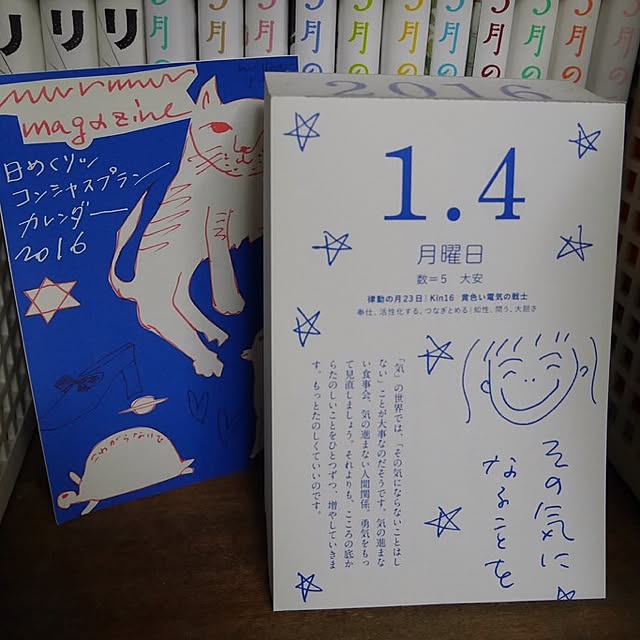 リ
リ
3月の
月の
月の
月の
月の
月の
月の
月の
月の
月の
murmur
magazine
日めくりッ
コンシャスプラン
カレンダー
2016
2016
1.4
月曜日
数=5 大安
律動の月23日|Kin16 黄色い電気の戦士
奉仕、活性化する、つなぎとめる|知性、問う、大胆さ
「気」の世界では、「その気にならないことはし
ない」ことが大事なのだそうです。気の進まな
い食事会、気の進まない人間関係。勇気をもっ
て見直しましょう。それよりも、こころの底か
らたのしいことをひとつずつ、増やしていきま
す。もっとたのしくていいのです。
その気に
なることを